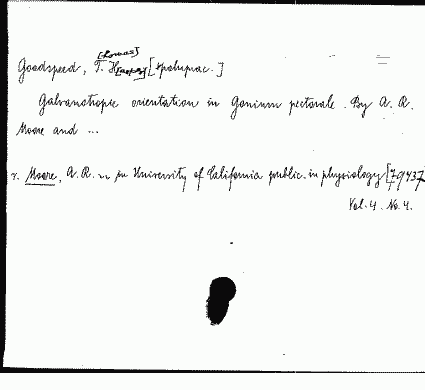 [Thomas]
Goodspeed, T. H[arper] [spółprac.]
Galvanotropic orientation in Gonium pectorale. By A. R.
Moore and ...
v. Moore, A. R. in University of California public. in physiology [79437
Vol. 4. No. 4.